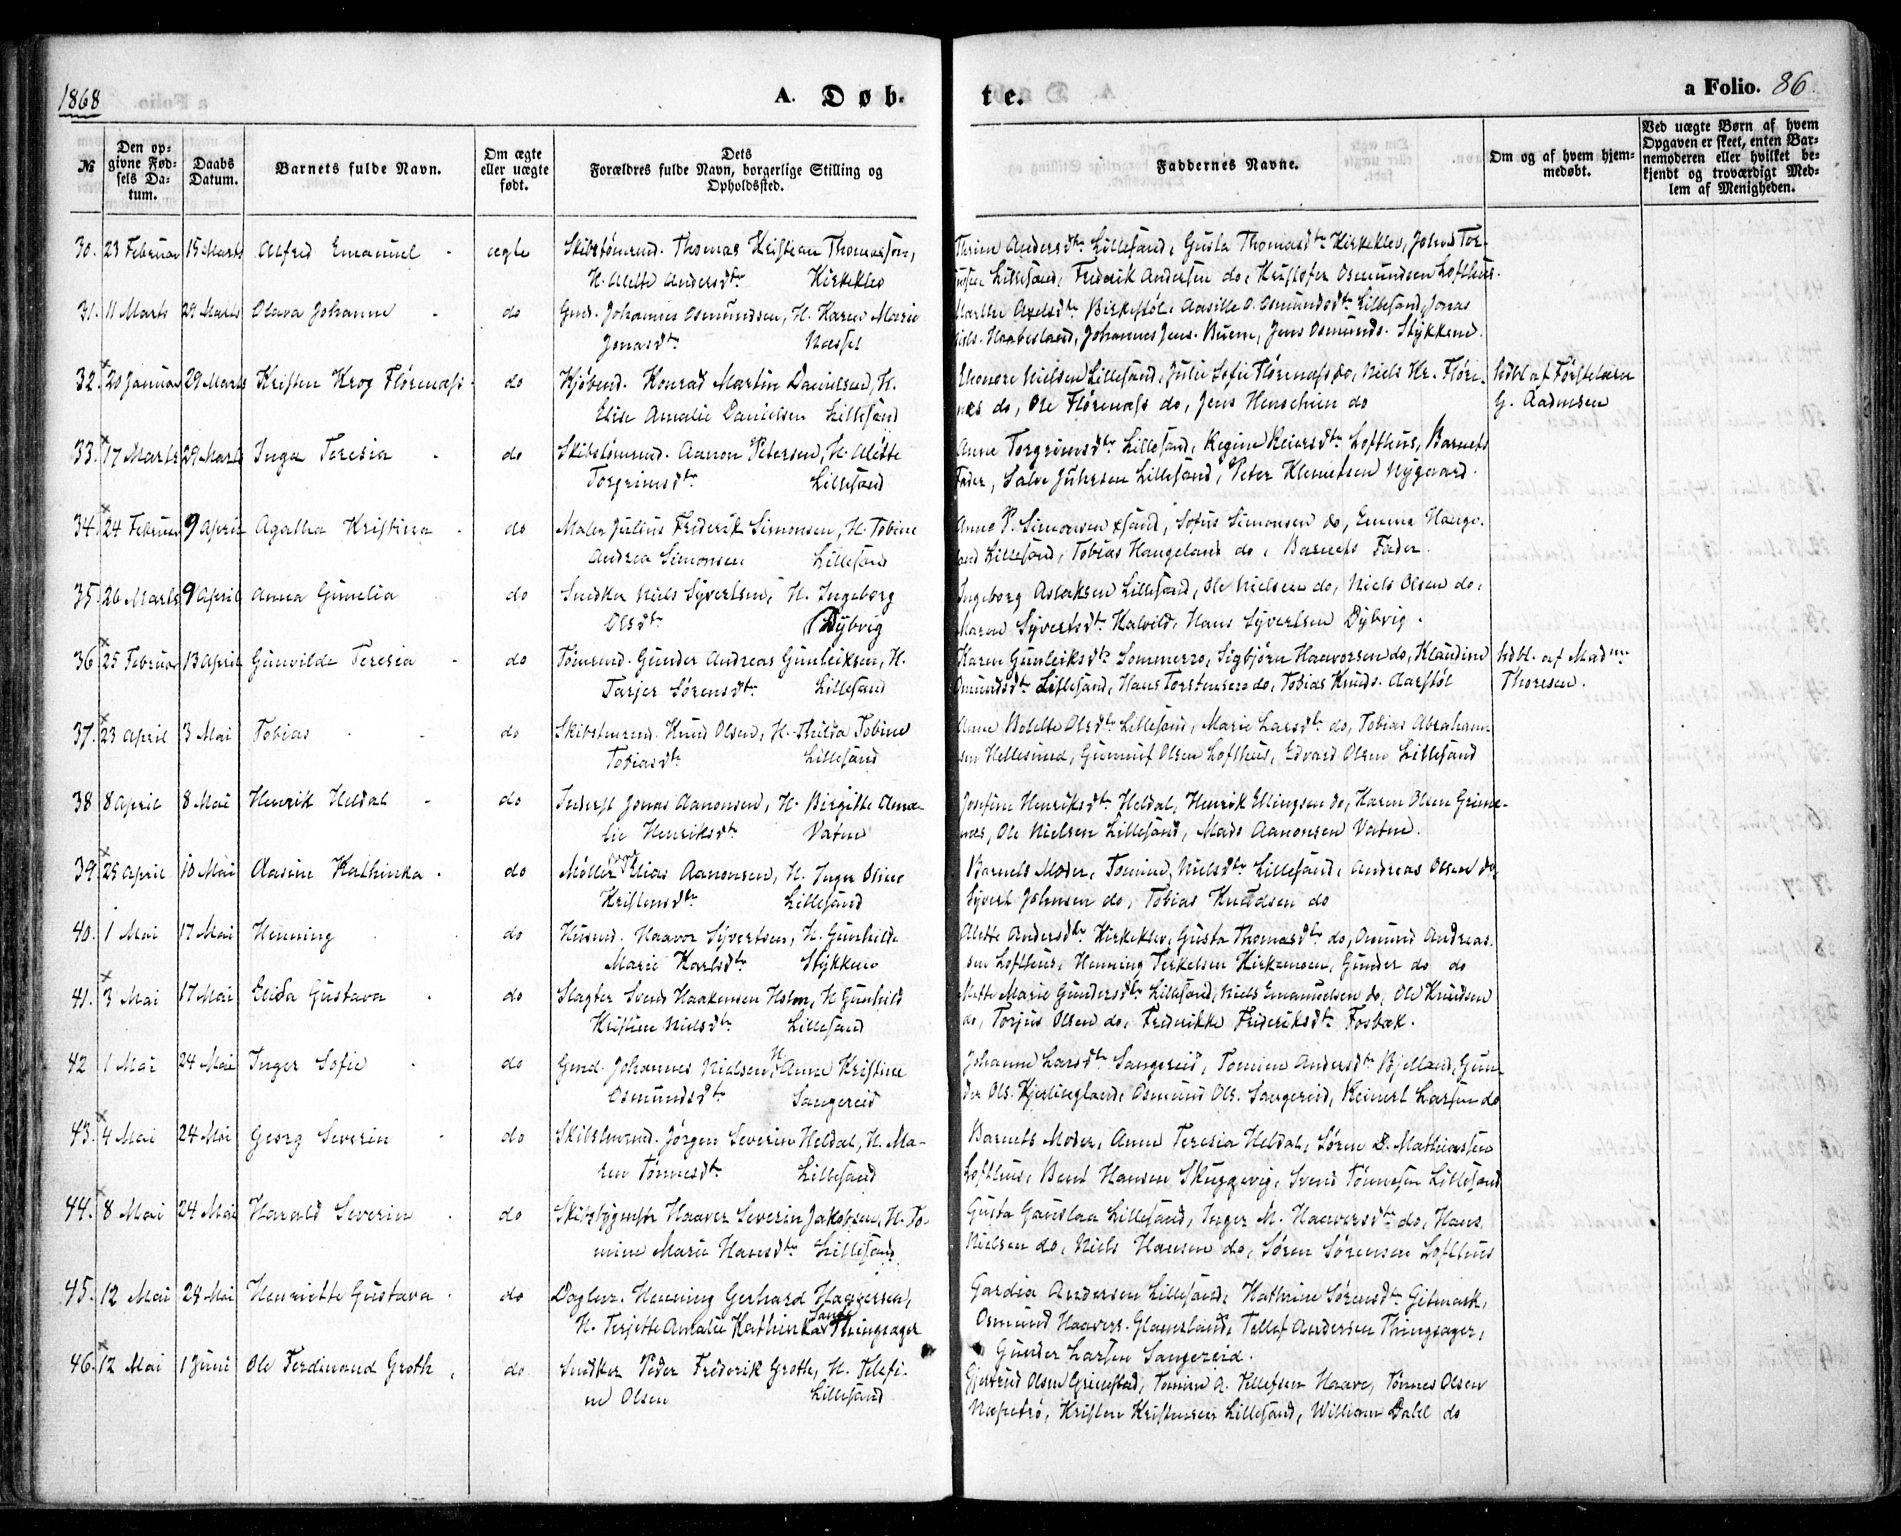 1868
A. Døb-
te.
a Folio. 86.
№
Den op-
givne Fød-
sels Da-
tum.
Daabs
Datum.
Barnets fulde Navn.
Om ægte
eller uægte
født.
Dets
Forældres fulde Navn, borgerlige Stilling og
Opholdssted.
Faddernes Navne.
Om og af hvem hjem-
medøbt.
Ved uægte Børn af hvem
Opgaven er skeet, enten Bar-
nemoderen eller hvilket be-
kjendt og troværdigt Med-
lem af Menigheden.
30. 23 Februar 15 Marts Alfred Emanuel - ægte Skibstømrmd. Thomas Kristian Thomassen,
H. Alette Andersdtr Kirkeklev
Thrine Andersdtr Lillesand, Gusta Thomasdtr Kirkeklev, Johns Tor-
Lillesand, Frederik Andersen do, Kristofer Osmundsen Lofthus.
31. 11 Marts 29 Marts Olava Johanne - do Gmd. Johannes Osmundsen, H. Karen Marie
Jonasdtr Næsset
Marthe Axelsdtr Birkestøl, Aasille O. Osmundsdtr Lillesand, Jonas
Niels. Haabesland, Johannes Jens. Buene, Jens Osmunds. Stykkene.
32. 20 Januar 29 Marts Kristen Krog Flørenæss - do Kjøbmd. Konrad Martin Danielsen, H.
Elise Amalie Danielsen Lillesand
Elenore Nielsen Lillesand, Julie Sofie Flørenæss do, Niels Kr. Fløre-
næs do, Ole Flørenæss do, Jens Henschien do
hdbl af Førstelærer
G. Aadnesen
33. 17 Marts 29 Marts Inga Teresia - do Skibstømrmd. Aanon Petersen, H. Alette
Torgrimsdtr Lillesand
Anne Torgrimsdtr Lillesand, Regine Reiersdtr Lofthus, Barnets
Fader, Salve Juhrsen Lillesand, Peter Klemetsen Nygaard.
34. 24 Februar 9 April Agatha Kristina - do Maler Julius Frederik Simonsen, H. Tobine
Andrea Simonsen Lillesand
Anne P. Simonsen xsand, Sofus Simonsen do, Emma Hauge-
land Lillesand, Tobias Haugeland do, Barnets Fader.
35. 26 Marts 9 April Anna Gunelia do Snedker Niels Syvertsen, H. Ingeborg
Olsdtr Dybvig
Ingeborg Aslaksen Lillesand, Ole Nielsen do, Niels Olsen do,
Maren Syvertsdtr Kalvild, Hans Syvertsen Dybvig.
36. 25 Februar 13 April Gunvilde Teresia - do Tømrmd. Gunder Andreas Gunleiksen, H.
Tarjer Sørensdtr Lillesand
Karen Gunleiksdtr Sommerro, Sigbjørn Haavorsen do, Klaudine
Omundsdtr Lillesand, Hans Torstensen do, Tobias Knuds. Aarstøl
hdbl. af Madme
Thoresen.
37. 23 April 3 Mai Tobias - do Skibstmrmd. Knud Olsen, H. Thilda Tobine
Tobiasdtr Lillesand
Anne Bolette Olsdtr Lillesand, Marie Larsdtr do, Tobias Abraham-
sen Hellesund, Gunnuf Olsen Lofthus, Edvard Olsen Lillesand
38 8 April 8 Mai Henrik Heldal - do Inderst Jonas Aanonsen, H. Birgitte Ama-
lie Henriksdtr Vatne
Josefine Henriksdtr Heldal, Henrik Ellingsen do, Karen Olsen Grime-
næs, Ole Nielsen Lillesand, Mads Aanonsen Vatne.
39. 25 April 10 Mai Aasine Kathinka - do Møller Elias Aanonsen, H. Inger Oline
Kristensdtr Lillesand
Barnets Moder, Tomine Nielsdtr Lillesand, Andreas Olsen do,
Syvert Johnsen do, Tobias Knudsen do
40. 1 Mai 17 Mai Henning do Husmd. Haavor Syvertsen, H. Gunhilde
Marie Karlsdtr Stykkene
Alette Andersdtr Kirkeklev, Gusta Thomasdtr do, Omund Andreas-
sen Lofthus, Henning Terkelsen Kirkemoen, Gunder do do
41. 3 Mai 17 Mai Elida Gustava - do Slagter Svend Haakensen Holm, H Gunhild
Kristine Nielsdtr Lillesand
Mette Marie Gundersdtr Lillesand, Niels Emanuelsen do, Ole Knudsen
do, Torjus Olsen do, Fredrikke Frideriksdtr Fosbæk.
42 1 Mai 24 Mai Inger Sofie - do Gmd. Johannes Nielsen, H. Anne Kristine
Osmundsdtr Sangereid
Johanne Larsdtr Sangereid, Tomine Andersdtr Bjelland, Gun-
der Ols. Kjerlingland, Osmund Ols. Sangereid, Reinert Larsen do
43. 4 Mai 24 Mai Georg Severin - do Skibstmrmd. Jørgen Severin Heldal, H. Ma-
ren Tønnesdtr Lillesand
Barnets Moder, Anne Teresia Heldal, Søren D. Mathiassen
Lofthus, Bent Hansen Skuggevig, Svend Tønnesen Lillesand
44. 8 Mai 24 Mai Harald Severin - do Skibsbygmstr Haaver Severin Jakobsen, H. To-
mine Marie Hansdtr Lillesand
Gusta Gauslaa Lillesand, Inger M. Haaversdtr do, Hans
Nielsen do, Niels Hansen do, Søren Sørensen Lofthus
45. 12 Mai 24 Mai Henriette Gustava - do Daglnr. Henning Gerhard Haagersen,
H. Terjette Amalie Kathinka Thingsager
Gardia Andersen Lillesand, Kathrine Sørensdtr Gitmark,
Osmund Haavers. Glamsland, Tellef Andersen Thingsager,
Gunder Larsen Sangereid.
46. 12 Mai 1 Juni Ole Ferdinand Groth - do Snedker Peder Frederik Groth, H. Telefi-
ne Olsen Lillesand
Gjertrud Olsen Grimstad, Tomine A. Tellefsen Haave, Tønnes Olsen
Kristen Kristensen Lillesand, William Dahl do